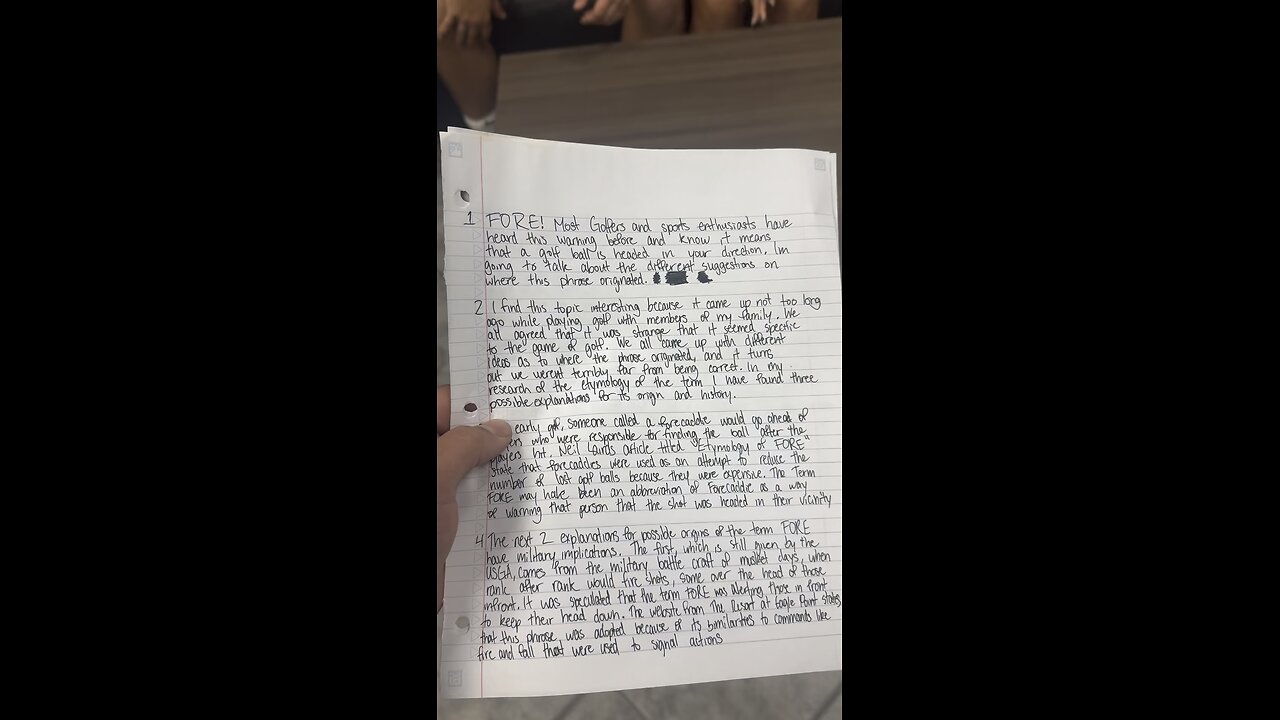 1 FORE! Most Golfers and sports enthusiasts have
heard this warning before and know it means
that a golf ball is headed in your direction. Im
going to talk about the different suggestions on
where this phrase originated.
2 I find this topic interesting because it came up not too long
ago while playing golf with members of my family. We
all agreed that it was strange that it seemed specific
to the game of golf. We all came up with different
ideas as to where the phrase originated, and it turns
out we werent terribly far from being correct. In my
research of the etymology of the term I have found three
possible explanations for its origin and history.
early golf, someone called a forecaddie would go ahead of
who were responsible for finding the ball after the
players hit. Neil Lairds article titled "Etymology of FORE"
state that forecaddies were used as an attempt to reduce the
number of lost golf balls because they were expensive. The Term
FORE may have been an abbreviation of Forecaddie as a way
of warning that person that the shot was headed in their vicinity
4 The next 2 explanations for possible origins of the term FORE
have military implications. The first, which is still given by the
USGA, comes from the military battle craft of musket days, when
rank after rank would fire shots, some over the head of those
infront. It was speculated that the term FORE was alerting those in front
to keep their head down. The website from The Resort at Eagle Point states
that this phrase was adopted because of its similarities to commands like
fire and fall that were used to signal actions